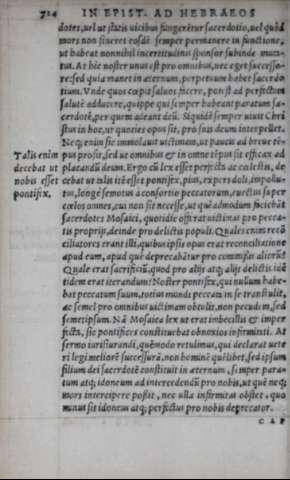 724 IN EPIST. AD HEBRAEOS
dotes, uel ut statis uicibus fungerētur sacerdotio, uel quòd
mors non sineret eosdē semper permanere in functione,
ut habeat nonnihil incertitudinis sponsor subinde muta-
tus. At hic noster unus est pro omnibus, nec eget successo-
re: sed quia manet in æternum, perpetuum habet sacerdo
tium. Vnde quos cœpit saluos facere, potest ad perfectam
salutē adducere, quippe qui semper habeant paratum sa-
cerdotē, per quem adeant deū. Siquidē semper uiuit Chri
stus in hoc, ut quoties opus sit, pro suis deum interpellet.
Neq; enim sic immolauit uictimam, ut paucis ad breue tē-
Talis enim
decebat ut
nobis esset
pontifex,
pus prosit, sed ut omnibus & in omne tēpus sit efficax ad
placandū deum. Ergo cū lex esset perfecta ac cœlestis, de
cebat ut talis itē esset pontifex, pius, expers doli, impollu-
tus, longe semotus à consortio peccatorum, euectus super
cœlos omnes, cui non sit necesse, ut quē admodum faciebāt
sacerdotes Mosaici, quotidie offerat uictimas pro pecca-
tis proprijs, deinde pro delictis populi. Quales enim recō
ciliatores erant illi, quibus ipsis opus erat reconciliatione
apud eum, apud quē deprecabātur pro commissis alienis?
Quale erat sacrificiū, quod pro alijs atq; alijs delictis idē
tidem erat iterandum? Noster pontifex, qui nullum habe-
bat peccatum suum, totius mundi peccata in se transtulit,
ac semel pro omnibus uictimam obtulit, non pecudem, sed
semetipsum. Nā Mosaica lex ut erat imbecillis & imper
fecta, sic pontifices constituebat obnoxios infirmitati. At
sermo iurisiurandi, quēmodo retulimus, qui declarat uete
ri legi meliorē successurā, non hominē quēlibet, sed ipsum
filium dei sacerdotē constituit in æternum, semper para-
tum atq; idoneum ad intercedendū pro nobis, ut quē neq;
mors intercipere possit, nec ulla infirmitas obstet, quo
minus sit idoneus atq; perfectus pro nobis deprecator.
CAP